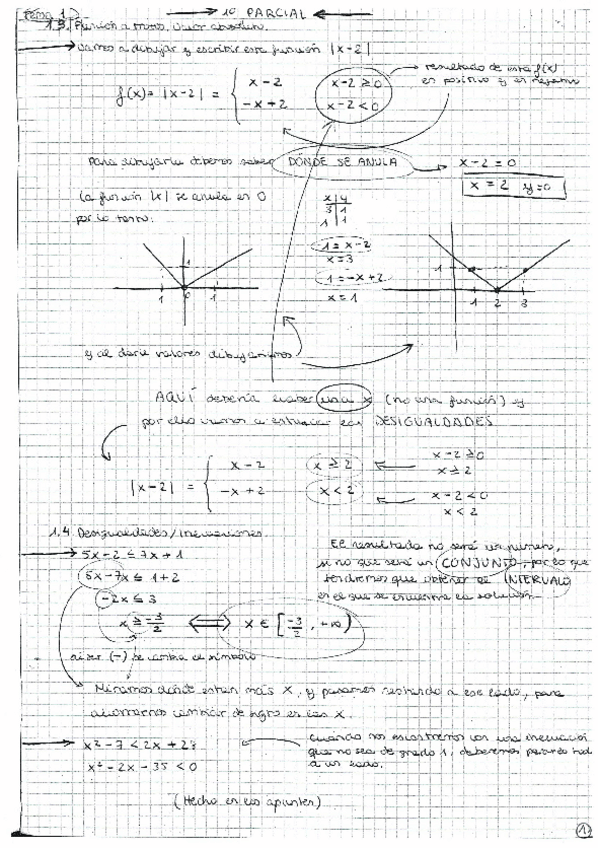 Tema 1. → 1º PARCIAL ←
1.3. Función a trozos, Valor absoluto.
→ vamos a dibujar y escribir esta función |x-2|
f(x) = |x-2| = { x-2   x-2 ≥ 0
-x+2   x-2 < 0
→ resultado de esta f(x)
es positivo y es negativo
Para dibujarla debemos saber DÓNDE SE ANULA → x-2 = 0
x = 2 y=0
la función |x| se anula en 0
por lo tanto:
x | y
3 | 1
1 | 1
1 = x-2
x = 3
1 = -x+2
x = 1
1 1 0 1
1 1 2 3
y al darle valores dibujamos
AQUÍ debería haber una x (no una función) y
por ello vamos a estudiar las DESIGUALDADES
|x-2| = { x-2   x ≥ 2 ← x-2 ≥ 0
x ≥ 2
-x+2   x < 2 ← x-2 < 0
x < 2
1.4. Desigualdades/Inecuaciones.
→ 5x-2 ≤ 7x+1
5x-7x ≤ 1+2
-2x ≤ 3
x ≥ -3/2 ⟺ x ∈ [-3/2, +∞)
al ser (-) se cambia el símbolo
El resultado no será un número,
si no que será un CONJUNTO, por lo que
tendremos que obtener el INTERVALO
en el que se encuentra la solución.
Miramos dónde están más x, y pasamos restando a ese lado, para
ahorrarnos cambiar de signo en las x.
→ x²-7 < 2x+23
x²-2x-35 < 0
cuando nos encontremos con una inecuación
que no sea de grado 1, debemos pasarlo todo
a un lado.
(Hecho en los apuntes)
1